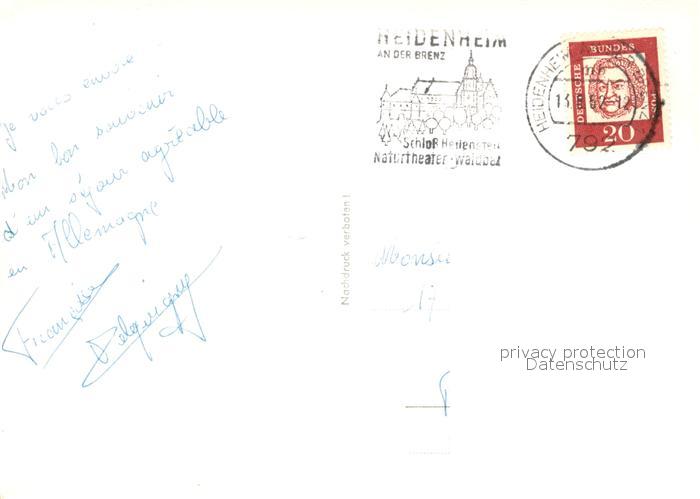 Je vous envoie
mon bon souvenir
d'un séjour agréable
en Allemagne
Française
Nachdruck verboten!
HEIDENHEIM
AN DER BRENZ
Schloß Hellenstein
Naturtheater · Waldbad
HEIDENHEIM
792
DEUTSCHE BUNDESPOST
20
Monsie
17
privacy protection
Datenschutz